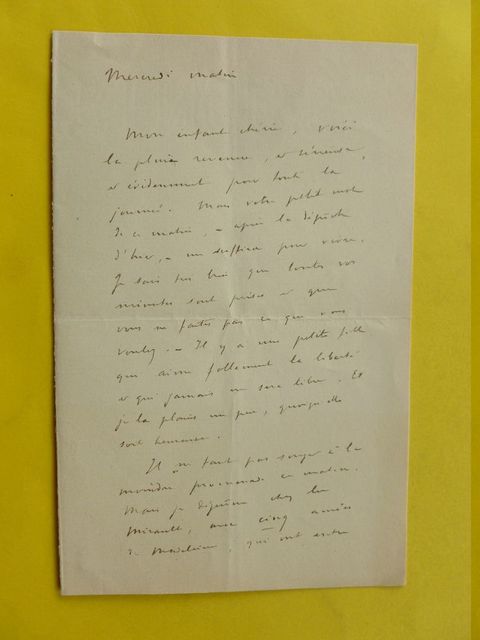 Mercredi matin
Mon enfant chérie, voici
la pluie revenue, et sérieuse,
et évidemment pour toute la
journée. Mais votre petit mot
de ce matin, – après la dépêche
d'hier, – me suffira pour vivre.
Je sais très bien que toutes vos
minutes sont prises et que
vous ne faites pas ce que vous
voulez. – Il y a une petite fille
qui aime follement la liberté
et qui jamais ne sera libre. Et
je la plains un peu, quoiqu'elle
soit heureuse.
Il ne faut pas songer à la
moindre promenade ce matin.
Mais je déjeûne chez les
Mirault, avec cinq amies
de Madeleine, qui ont entre